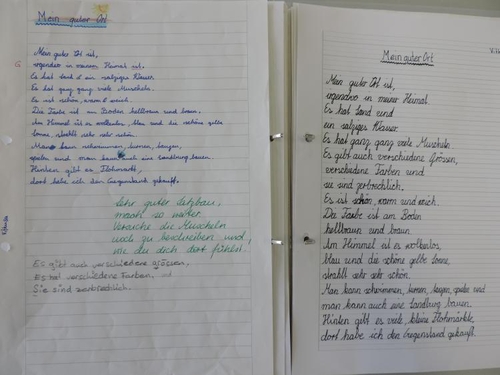 Mein guter Ort
Mein guter Ort ist,
irgendwo in meiner Heimat
Es hat Sand & ein salziges Wasser.
Es hat ganz ganz viele Muscheln.
Es ist schön, warm & weich.
Die Farbe ist am Boden hellbraun und braun.
Am Himmel ist es wolkenlos, blau und die schöne gelbe
Sonne, strahlt sehr sehr schön.
Man kann schwimmen, lernen, liegen,
spielen und man kann auch eine Sandburg bauen.
Hinten gibt es Flohmarkt,
dort habe ich den Gegenstand gekauft.
Sehr guter Satzbau,
mach so weiter.
Versuche die Muscheln
noch zu beschreiben und,
wie du dich dort fühlst.
Es gibt auch verschiedene Grössen,
Es hat verschiedene Farben,
Sie sind zerbrechlich.
Mein guter Ort
Mein guter Ort ist,
irgendwo in meiner Heimat.
Es hat Sand und
ein salziges Wasser.
Es hat ganz, ganz viele Muscheln.
Es gibt auch verschiedene Grössen,
verschiedene Farben und
sie sind zerbrechlich.
Es ist schön, warm und weich.
Die Farbe ist am Boden
hellbraun und braun.
Am Himmel ist es wolkenlos,
blau und die schöne gelbe Sonne,
strahlt sehr sehr schön.
Man kann schwimmen, lernen, liegen, spielen und
man kann auch eine Sandburg bauen.
Hinten gibt es viele, kleine Flohmärkte,
dort habe ich den Gegenstand gekauft.